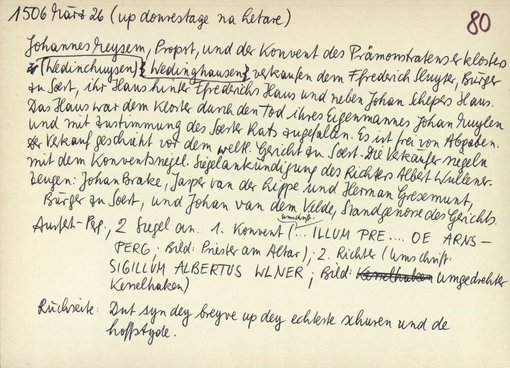 1506 März 26 (up donrestage na letare)
80
Johannes Neysem, Propst, und der Konvent des Prämonstratenserklosters
(Wedinchuysen) {Wedinghausen} verkaufen dem Ffrederich Sluyter, Bürger
zu Soest, ihr Haus hinter Ffrederichs Haus und neben Johan Schepers Haus.
Das Haus war dem Kloster durch den Tod ihres Eigenmannes Johan Nuylen
und mit Zustimmung des Soester Rats zugefallen. Es ist frei von Abgaben.
Der Verkauf geschieht vor dem weltl. Gericht zu Soest. Die Verkäufer siegeln
mit dem Konventssiegel. Siegelankündigung des Richters Albert Wullener.
Zeugen: Johan Brake, Jasper van der Lippe und Herman Gresemunt,
Bürger zu Soest, und Johan van dem Velde, Standgenosse des Gerichts.
Ausf.-Perg., 2 Siegel an. 1. Konvent (Umschrift: ... ILLUM PRE .... OE ARNS-
PERG; Bild: Priester am Altar), 2. Richter (Umschrift:
SIGILLUM ALBERTUS WLNER; Bild: Kesselhaken umgedrehter
Kesselhaken)
Rückseite: Dut syn dey breyve up dey echterste schuren und de
hoffstyde.